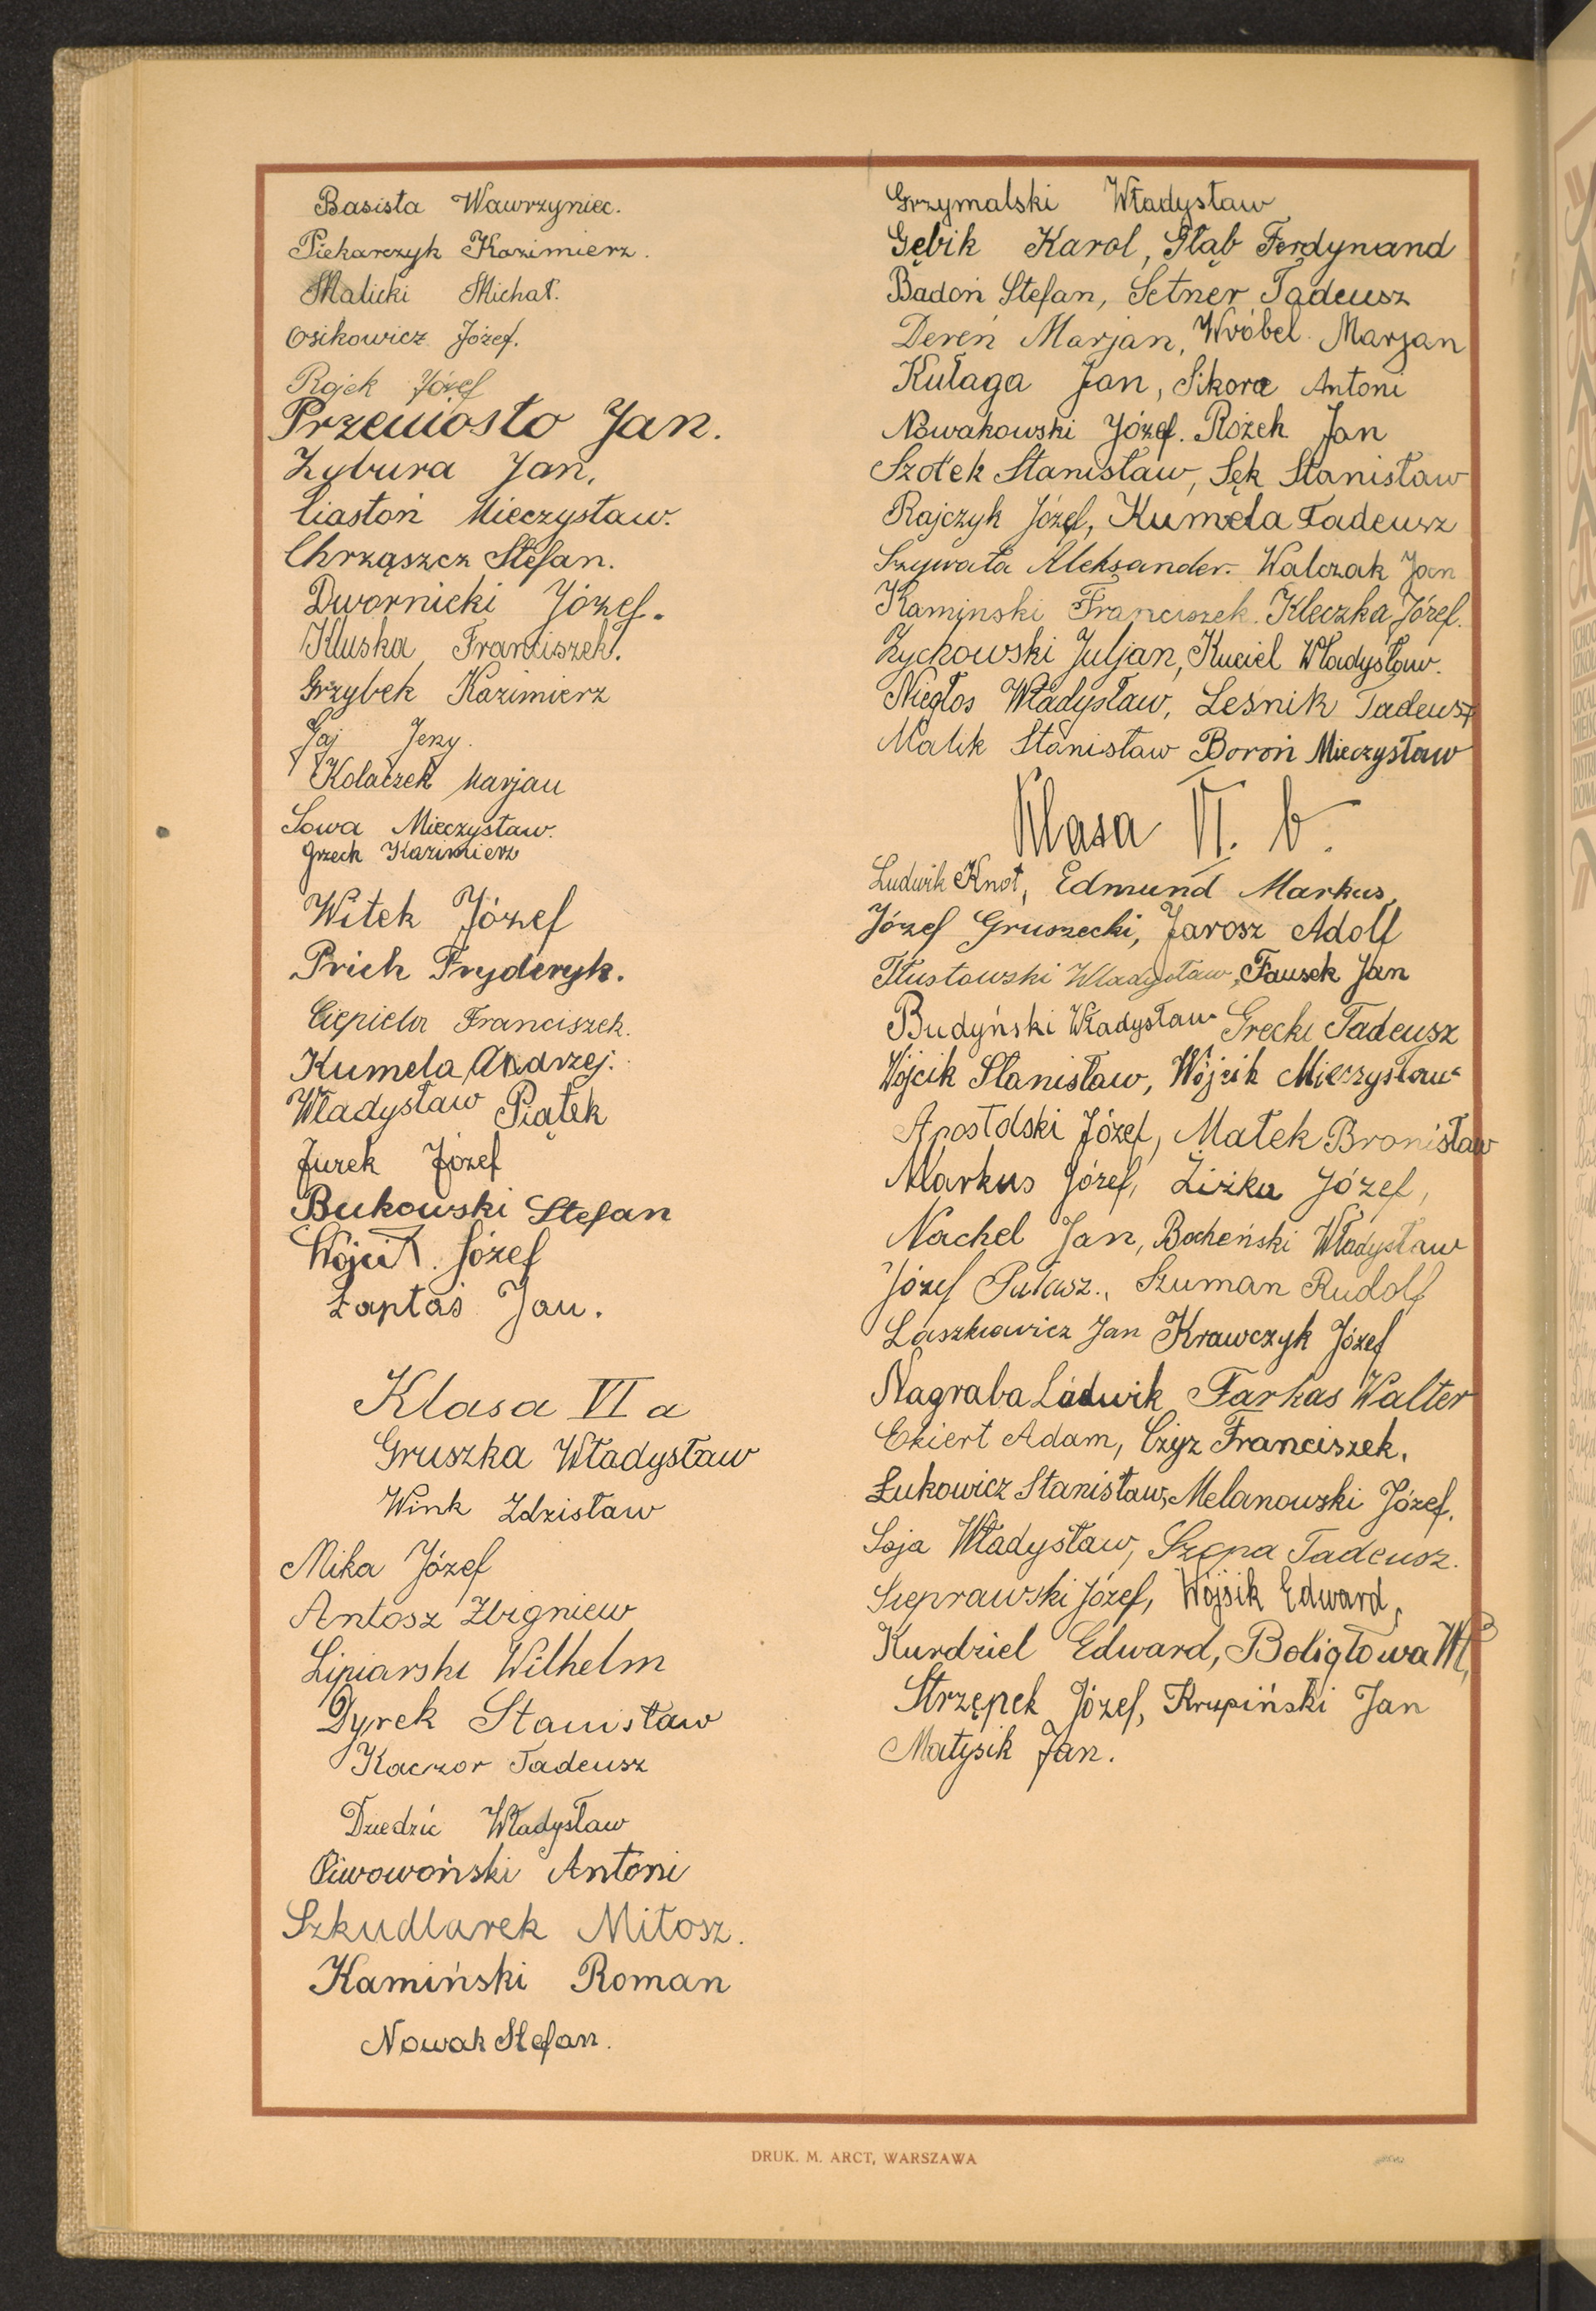 Basista Wawrzyniec.
Piekarczyk Kazimierz.
Malicki Michał.
Osikowicz Józef.
Rojek Józef
Przeniosło Jan.
Zybura Jan.
Ciastoń Mieczysław.
Chrząszcz Stefan.
Dwornicki Józef.
Kluska Franciszek.
Grzybek Kazimierz
Gaj Jerzy.
Kolaczek Marjan
Sowa Mieczysław.
Grzech Kazimierz
Witek Józef
Prich Fryderyk.
Ciepiela Franciszek.
Kumela Andrzej.
Władysław Piątek
Jurek Józef
Bukowski Stefan
Wójcik Józef
Łaptaś Jan.
Klasa VI a
Gruszka Władysław
Wink Zdzisław
Mika Józef
Antosz Zbigniew
Lipiarski Wilhelm
Dyrek Stanisław
Kaczor Tadeusz
Dziedzic Władysław
Piwowoński Antoni
Szkudlarek Miłosz.
Kamiński Roman
Nowak Stefan.
Grzymalski Władysław
Gębik Karol, Głąb Ferdynand
Badoń Stefan, Setner Tadeusz
Dereń Marjan, Wróbel Marjan
Kułaga Jan, Sikora Antoni
Nowakowski Józef. Rożek Jan
Szołek Stanisław, Sęk Stanisław
Rajczyk Józef, Kumela Tadeusz
Szywała Aleksander. Walczak Jan
Kaminski Franciszek. Kleczka Józef.
Zychowski Juljan, Kuciel Władysław.
Niegłos Władysław, Leśnik Tadeusz
Malik Stanisław Boroń Mieczysław
Klasa VI. b.
Ludwik Knot, Edmund Markus,
Józef Gruszecki, Jarosz Adolf
Tłustowski Władysław, Fausek Jan
Budyński Władysław Grecki Tadeusz
Wójcik Stanisław, Wójcik Mieczysław
Apostolski Józef, Małek Bronisław
Markus Józef, Żiżka Józef,
Nachel Jan, Bocheński Władysław
Józef Pułasz., Szuman Rudolf
Laszkiewicz Jan Krawczyk Józef
Nagraba Ludwik Farkas Walter
Ekiert Adam, Czyz Franciszek.
Łukowicz Stanisław, Melanowski Józef.
Soja Władysław, Szepa Tadeusz.
Sieprawski Józef, Wójsik Edward,
Kurdziel Edward, Boligłowa Wł,
Strzępek Józef, Krupiński Jan
Matysik Jan.
DRUK. M. ARCT, WARSZAWA